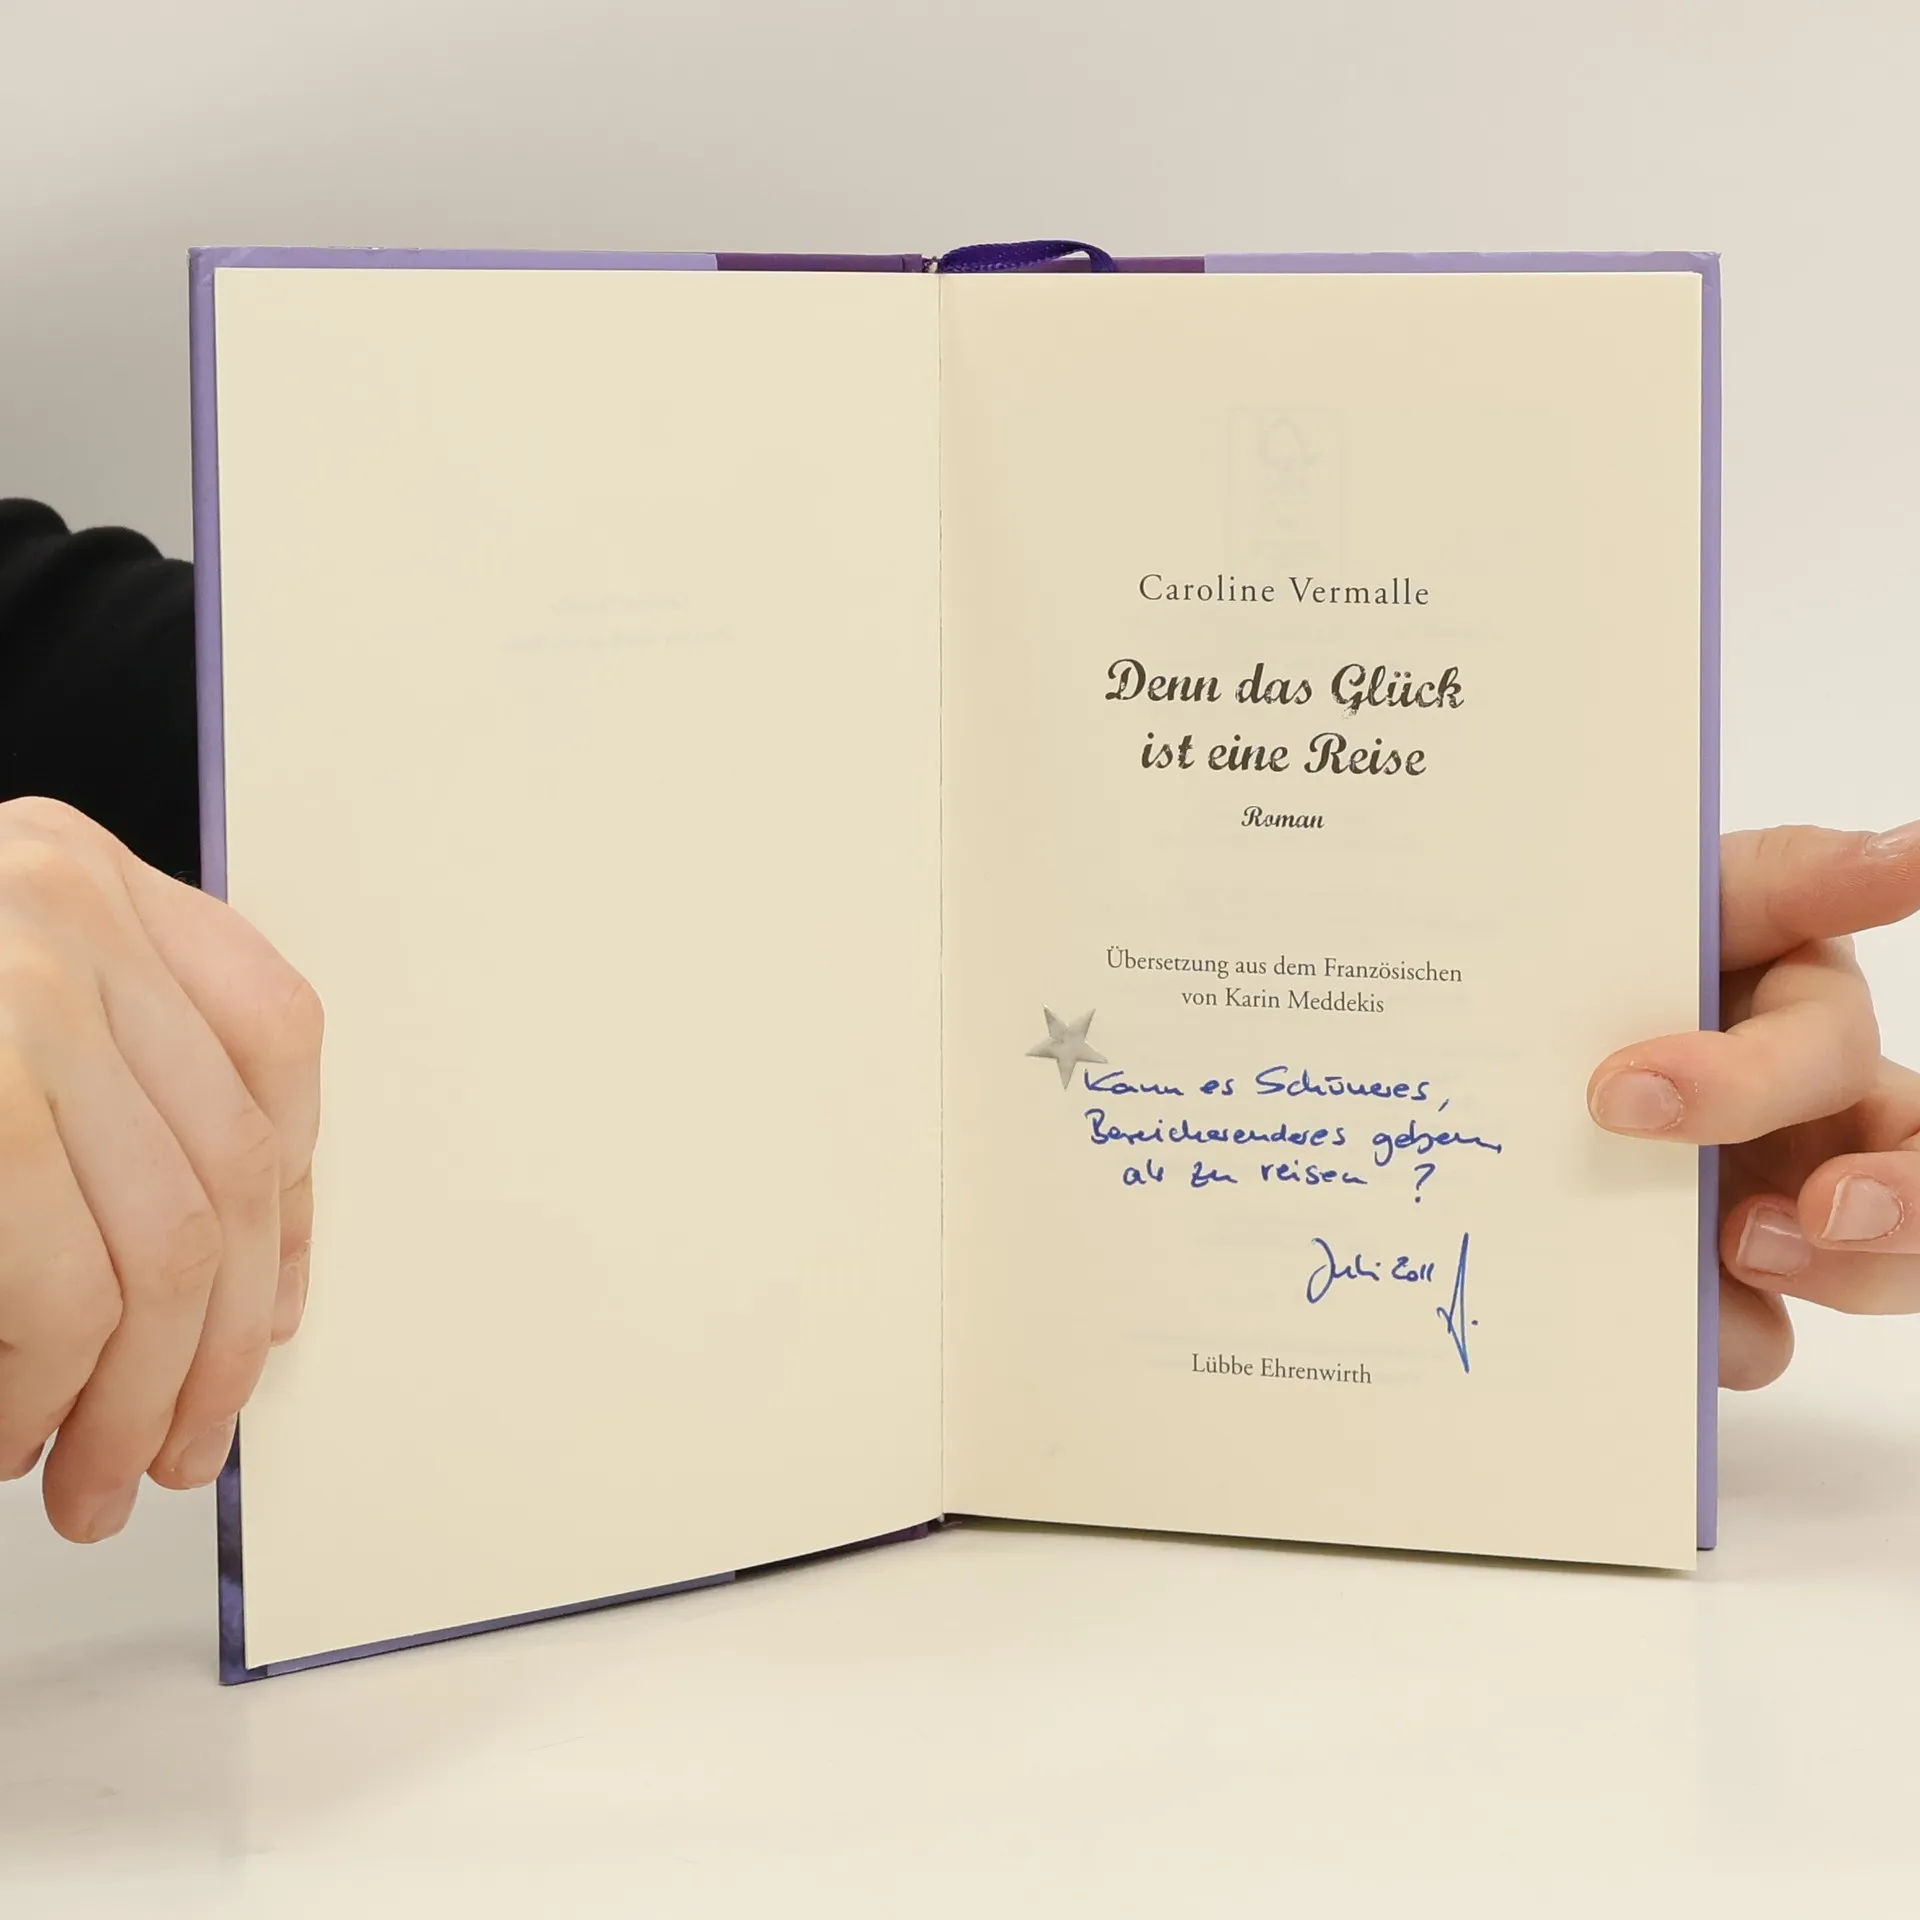 Caroline Vermalle
Denn das Glück
ist eine Reise
Roman
Übersetzung aus dem Französischen
von Karin Meddekis
Kann es Schöneres,
Bereicherenderes geben,
als zu reisen ?
Juli 2011
Lübbe Ehrenwirth